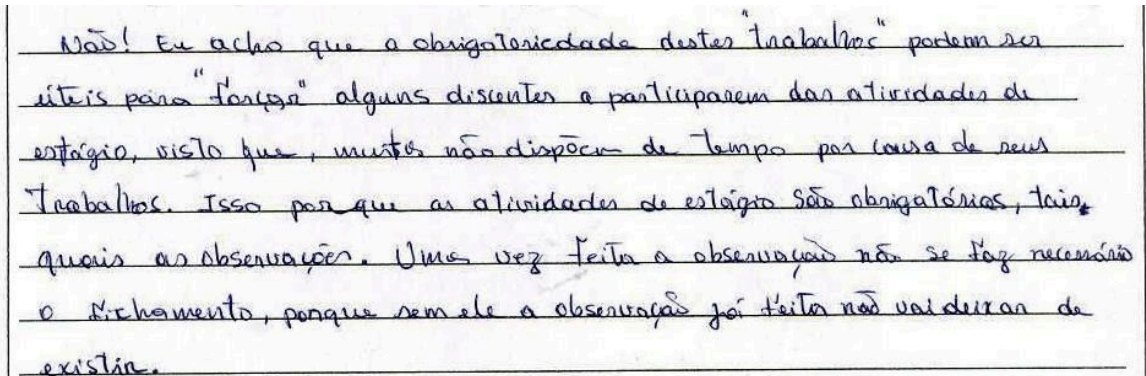 Não! Eu acho que a obrigatoriedade destes "trabalhos" podem ser
úteis para "forçar" alguns discentes a participarem das atividades de
estágio, visto que, muitos não dispõem de tempo por causa de seus
trabalhos. Isso por que as atividades de estágio são obrigatórias, tais
quais as observações. Uma vez feita a observação não se faz necessário
o fichamento, porque sem ele a observação já feita não vai deixar de
existir.